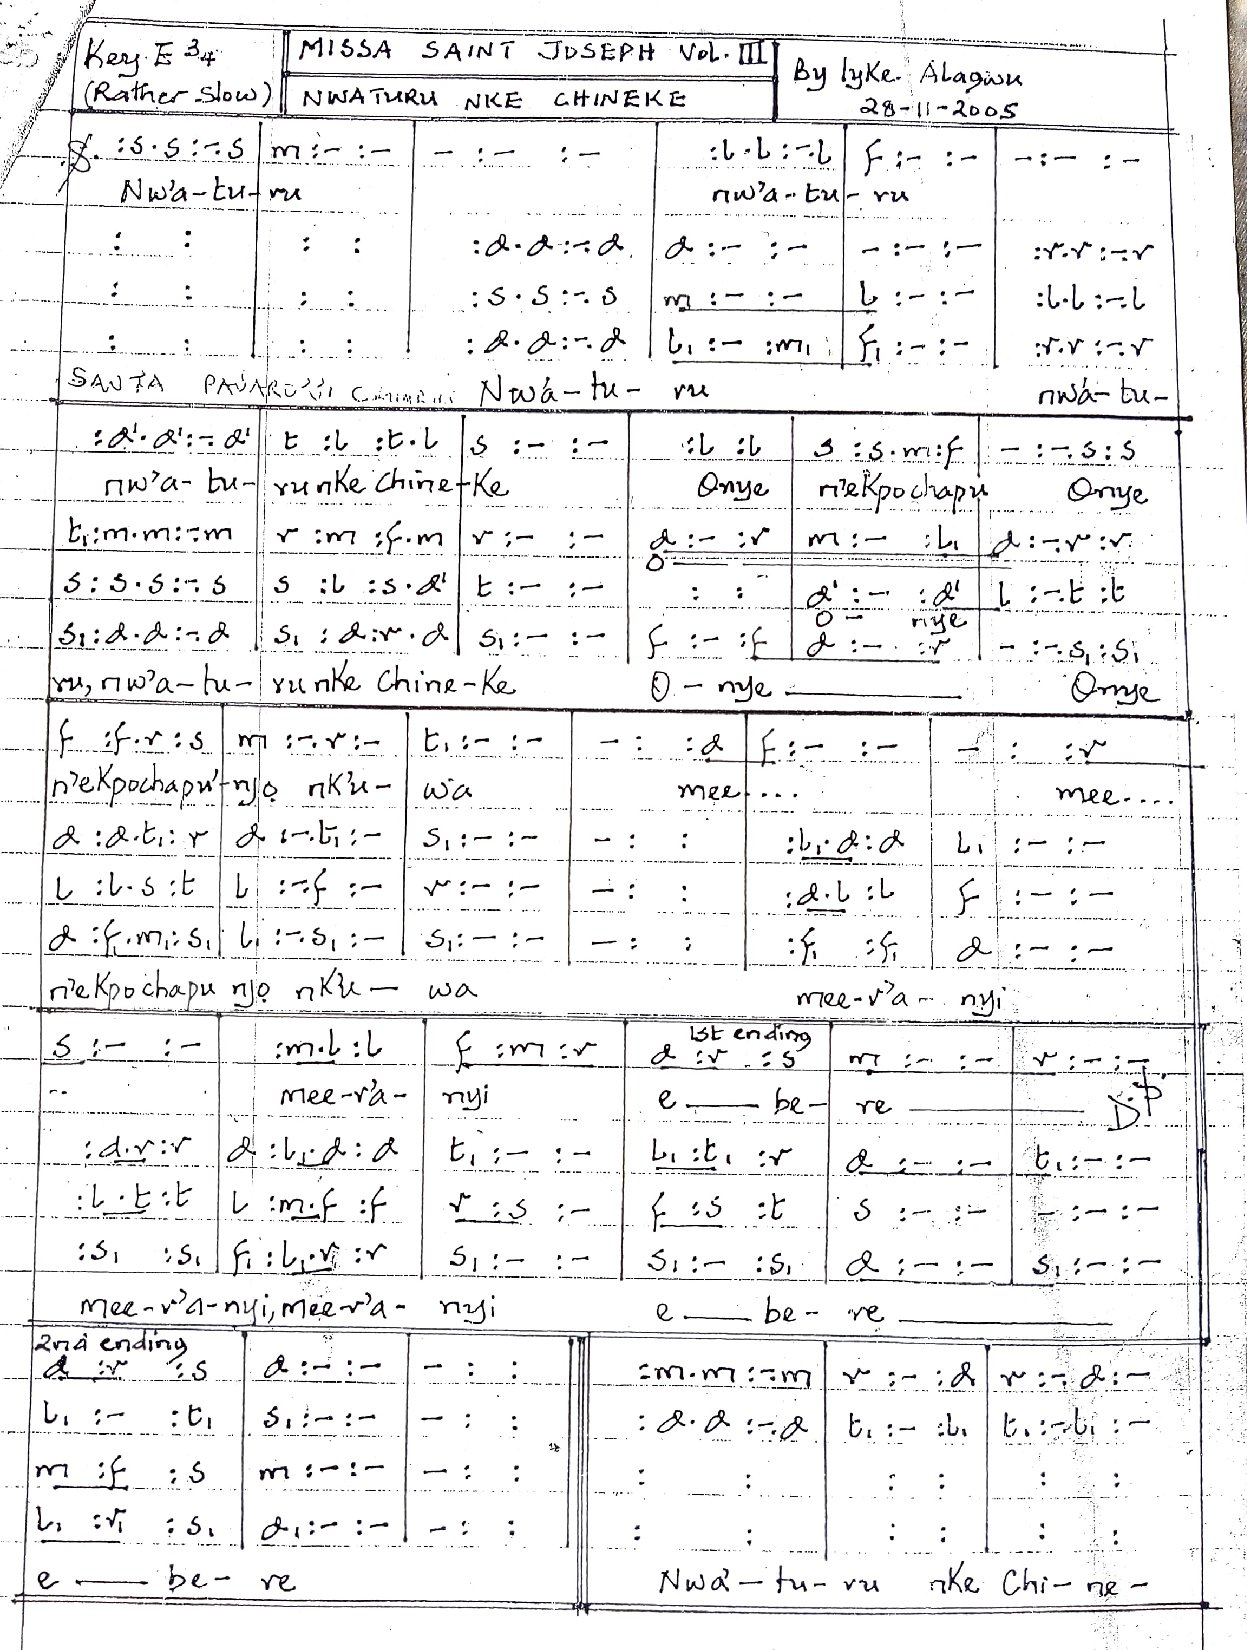 Key E 3/4
(Rather Slow)
MISSA SAINT JOSEPH Vol. III
NWATURU NKE CHINEKE
By Iyke Alagwu
28-11-2005
S. :s.s:-.s | m:- :- | - :- :- | :l.l:-.l | f:- :- | -:- :-
Nw'a-tu-ru nw'a-tu-ru
: : | : : | :d.d:-.d | d:- :- | -:- :- | :r.r:-.r
: : | : : | :s.s:-.s | m:- :- | l:- :- | :l.l:-.l
: : | : : | :d.d:-.d | l₁:- :m₁ | f₁:- :- | :r.r:-.r
SANTA Nwá-tu-ru nwá-tu-
:d'.d':-.d' | t :l :t.l | s :- :- | :l :l | s :s.m:f | - :-.s:s
nw'a-tu-runke Chine-Ke Onye n'ekpochapu Onye
t₁:m.m:-.m | r :m :f.m | r:- :- | d:- :r | m:- :l₁ | d:-.r:r
O
s:s.s:-.s | s :l :s.d' | t:- :- | : : | d':- :d' | l:-.t:t
O- nye
s₁:d.d:-.d | s₁ :d:r.d | s₁:- :- | f:- :f | d:- :r | - :-.s₁:s₁
ru, nw'a-tu-runke Chine-Ke O-nye Onye
f :f.r:s | m :-.r:- | t₁:- :- | - : :d | f:- :- | - : :r
n'ekpochapu'-njọ nk'u-wa mee.... mee....
d :d.t₁:r | d :-.t₁:- | s₁:- :- | - : : | :l₁.d:d | l₁ :- :-
l :l.s:t | l :-.f:- | r:- :- | - : : | :d.l:l | f :- :-
d :f₁.m₁:s₁ | l₁ :-.s₁:- | s₁:- :- | - : : | :f₁ :f₁ | d :- :-
n'ekpochapu njọ nk'u-wa mee-r'a-nyi
1st ending
s :- :- | :m.l:l | f :m :r | d :r :s | m :- :- | r:- :-
.. mee-r'a-nyi e be-re D.S.
:d.r:r | d :l₁.d:d | t₁:- :- | l₁:t₁ :r | d :- :- | t₁:- :-
:l.t:t | l :m.f:f | r :s :- | f :s :t | s :- :- | -:- :-
:s₁ :s₁ | f₁:l₁.r:r | s₁:- :- | s₁:- :s₁ | d :- :- | s₁:- :-
mee-r'a-nyi, mee-r'a-nyi e be-re
2nd ending
d :r :s | d:- :- | - : : || :m.m:-.m | r:- :d | r:-.d:-
l₁ :- :t₁ | s₁:- :- | - : : || :d.d:-.d | t₁:- :l₁ | t₁:-.l₁:-
m :f :s | m:- :- | - : : || : : | : : | : :
l₁ :r₁ :s₁ | d₁:- :- | - : : || : : | : : | : :
e be-re Nwá-tu-ru nke Chi-ne-